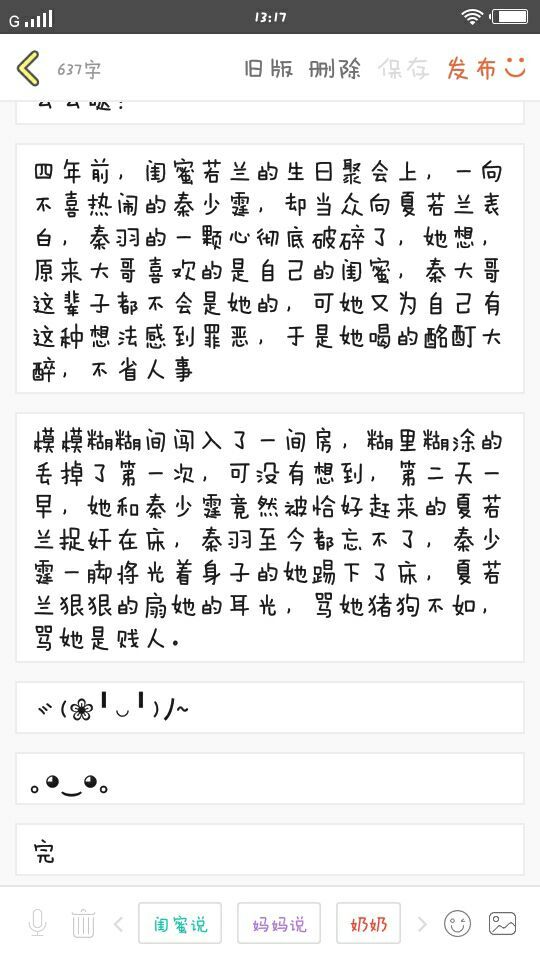 G
13:17
637字
旧版 删除 保存 发布
么么哒!
四年前，闺蜜若兰的生日聚会上，一向
不喜热闹的秦少霆，却当众向夏若兰表
白，秦羽的一颗心彻底破碎了，她想，
原来大哥喜欢的是自己的闺蜜，秦大哥
这辈子都不会是她的，可她又为自己有
这种想法感到罪恶，于是她喝的酩酊大
醉，不省人事
模模糊糊间闯入了一间房，糊里糊涂的
丢掉了第一次，可没有想到，第二天一
早，她和秦少霆竟然被恰好赶来的夏若
兰捉奸在床，秦羽至今都忘不了，秦少
霆一脚将光着身子的她踢下了床，夏若
兰狠狠的扇她的耳光，骂她猪狗不如，
骂她是贱人。
ヾ(❀╹◡╹)ﾉ~
｡◕‿◕｡
完
闺蜜说 妈妈说 奶奶